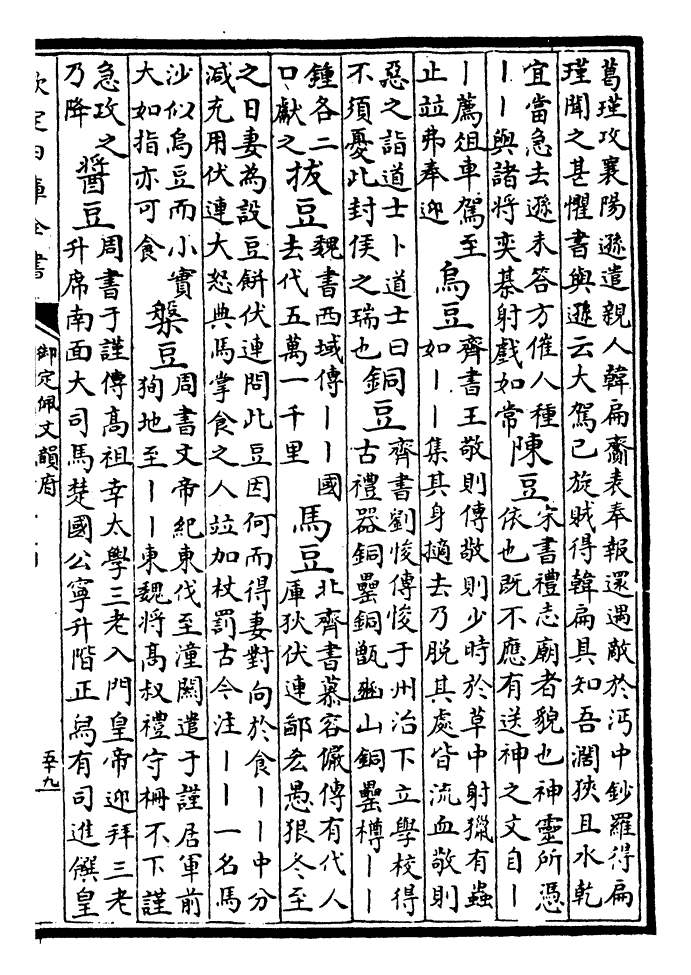 葛瑾攻襄陽遜遣親人韓扁齎表奉報還遇敵於沔中鈔羅得扁
瑾聞之甚懼書與遜云大駕已旋賊得韓扁具知吾濶狹且水乾
宜當急去遜未答方催人種
丨丨與諸將奕棊射戲如常
陳豆
宋書禮志廟者貌也神靈所憑
依也既不應有送神之文自丨
丨薦俎車駕至
止竝弗奉迎
烏豆
齊書王敬則傳敬則少時於草中射獵有蟲
如丨丨集其身擿去乃脫其處皆流血敬則
惡之詣道士卜道士曰
不須憂此封侯之瑞也
銅豆
齊書劉悛傳悛于州治下立學校得
古禮器銅罍銅甑豳山銅罍樽丨丨
鍾各二
口獻之
拔豆
魏書西域傳丨丨國
去代五萬一千里
馬豆
北齊書慕容儼傳有代人
庫狄伏連鄙吝愚狠冬至
之日妻為設豆餅伏連問此豆因何而得妻對向於食丨丨中分
減充用伏連大怒典馬掌食之人竝加杖罰古今注丨丨一名馬
沙似烏豆而小實
大如指亦可食
槃豆
周書文帝紀東伐至潼關遣于謹居軍前
狥地至丨丨東魏將髙叔禮守柵不下謹
急攻之
乃降
醬豆
周書于謹傳髙祖幸太學三老入門皇帝迎拜三老
升席南面大司馬楚國公寧升階正舄有司進饌皇
欽定四庫全書
御定佩文韻府
五十九